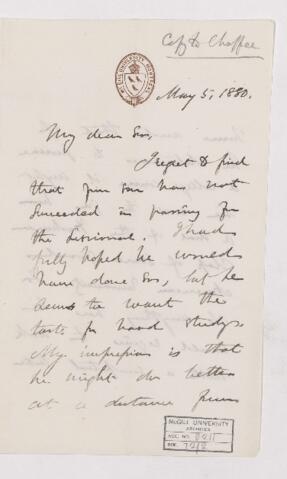 Copy to Chaffee
McGILL UNIVERSITY MONTREAL
May 5, 1880.
My dear Sir,
I regret to find
that your son has not
succeeded in passing for
the Sessional. I had
fully hoped he would
have done so, but he
seems to want the
taste for hard study.
My impression is that
he might do better
at a distance from
McGILL UNIVERSITY
ARCHIVES
ACC. NO.
REF.